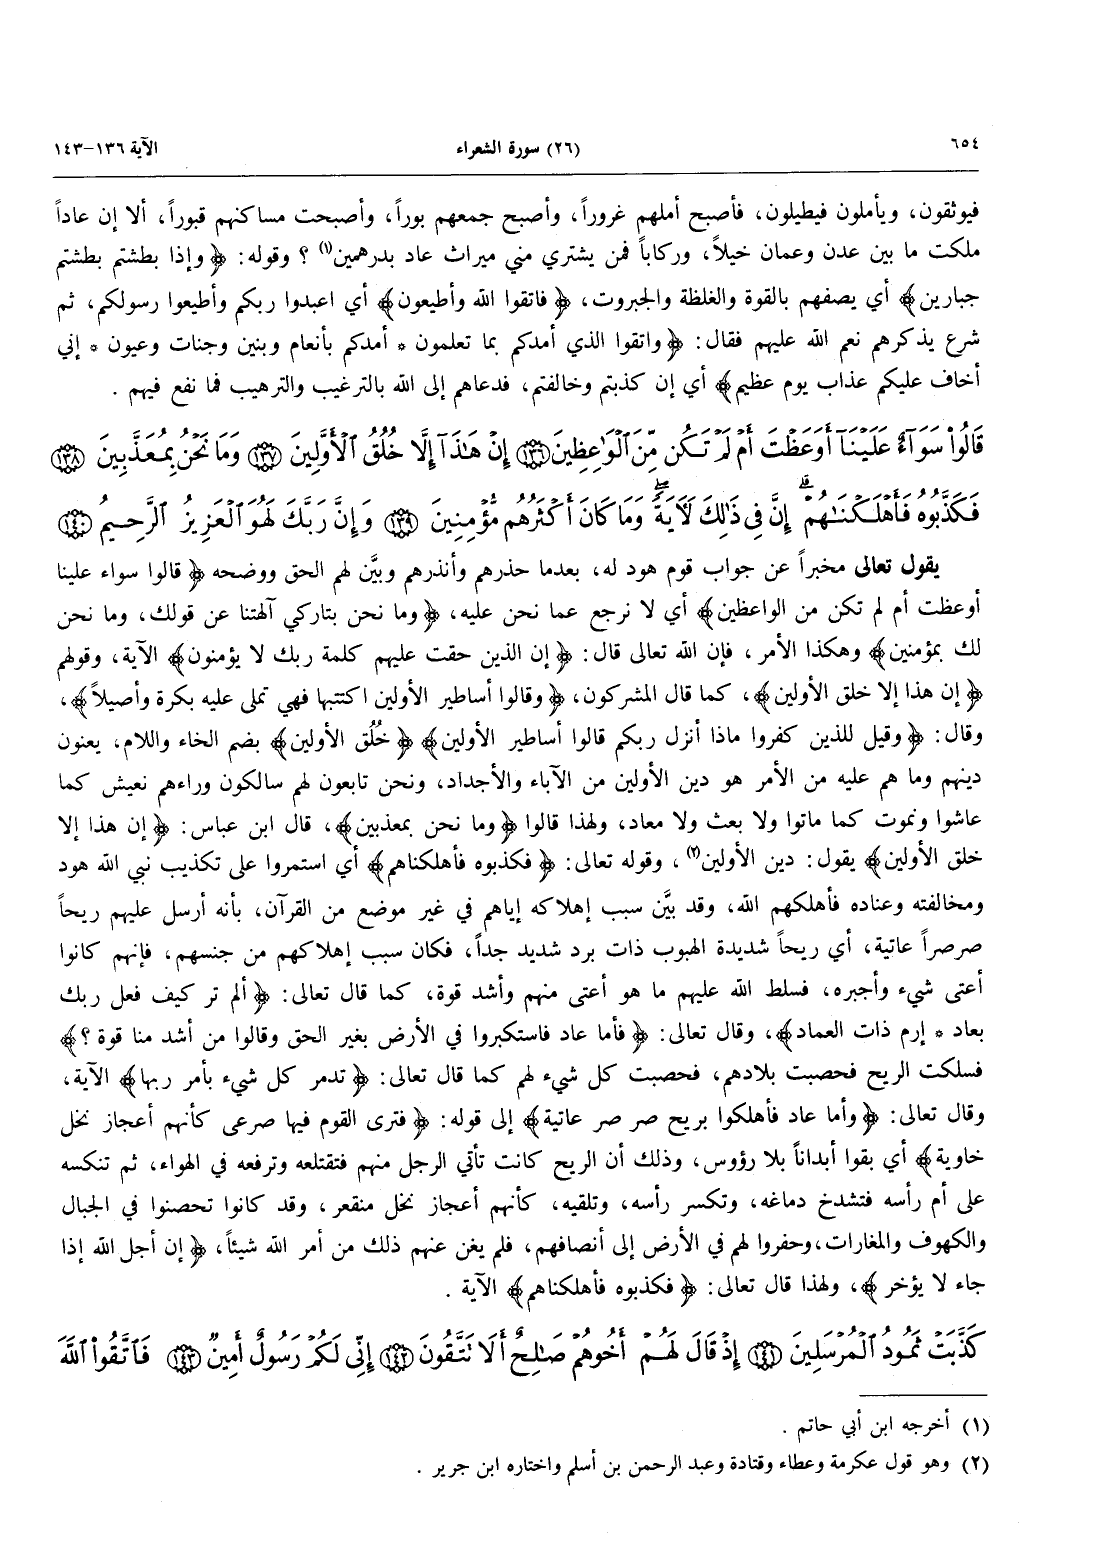 ٦٥٤ (٢٦) سورة الشعراء الآية ١٣٦-١٤٣
فيوثقون، ويأملون فيطيلون، فأصبح أملهم غروراً، وأصبح جمعهم بوراً، وأصبحت مساكنهم قبوراً، ألا إن عاداً
ملكت ما بين عدن وعمان خيلاً، وركاباً فمن يشتري مني ميراث عاد بدرهمين(١) ؟ وقوله: ﴿وإذا بطشتم بطشتم
جبارين﴾ أي يصفهم بالقوة والغلظة والجبروت، ﴿فاتقوا الله وأطيعون﴾ أي اعبدوا ربكم وأطيعوا رسولكم، ثم
شرع يذكرهم نعم الله عليهم فقال: ﴿واتقوا الذي أمدكم بما تعلمون * أمدكم بأنعام وبنين وجنات وعيون * إني
أخاف عليكم عذاب يوم عظيم﴾ أي إن كذبتم وخالفتم، فدعاهم إلى الله بالترغيب والترهيب فما نفع فيهم .
قَالُوا۟ سَوَآءٌ عَلَيْنَآ أَوَعَظْتَ أَمْ لَمْ تَكُن مِّنَ ٱلْوَٰعِظِينَ ١٣٦ إِنْ هَٰذَآ إِلَّا خُلُقُ ٱلْأَوَّلِينَ ١٣٧ وَمَا نَحْنُ بِمُعَذَّبِينَ ١٣٨
فَكَذَّبُوهُ فَأَهْلَكْنَٰهُمْ ۗ إِنَّ فِى ذَٰلِكَ لَءَايَةً ۖ وَمَا كَانَ أَكْثَرُهُم مُّؤْمِنِينَ ١٣٩ وَإِنَّ رَبَّكَ لَهُوَ ٱلْعَزِيزُ ٱلرَّحِيمُ ١٤٠
يقول تعالى مخبراً عن جواب قوم هود له، بعدما حذرهم وأنذرهم وبيَّن لهم الحق ووضحه ﴿قالوا سواء علينا
أوعظت أم لم تكن من الواعظين﴾ أي لا نرجع عما نحن عليه، ﴿وما نحن بتاركي آلهتنا عن قولك، وما نحن
لك بمؤمنين﴾ وهكذا الأمر، فإن الله تعالى قال: ﴿إن الذين حقت عليهم كلمة ربك لا يؤمنون﴾ الآية، وقولهم
﴿إن هذا إلا خلق الأولين﴾، كما قال المشركون، ﴿وقالوا أساطير الأولين اكتتبها فهي تملى عليه بكرة وأصيلاً﴾،
وقال: ﴿وقيل للذين كفروا ماذا أنزل ربكم قالوا أساطير الأولين﴾ ﴿خُلُق الأولين﴾ بضم الخاء واللام، يعنون
دينهم وما هم عليه من الأمر هو دين الأولين من الآباء والأجداد، ونحن تابعون لهم سالكون وراءهم نعيش كما
عاشوا ونموت كما ماتوا ولا بعث ولا معاد، ولهذا قالوا ﴿وما نحن بمعذبين﴾، قال ابن عباس: ﴿إن هذا إلا
خلق الأولين﴾ يقول: دين الأولين(٢) ، وقوله تعالى: ﴿فكذبوه فأهلكناهم﴾ أي استمروا على تكذيب نبي الله هود
ومخالفته وعناده فأهلكهم الله، وقد بيَّن سبب إهلاكه إياهم في غير موضع من القرآن، بأنه أرسل عليهم ريحاً
صرصراً عاتية، أي ريحاً شديدة الهبوب ذات برد شديد جداً، فكان سبب إهلاكهم من جنسهم، فإنهم كانوا
أعتى شيء وأجبره، فسلط الله عليهم ما هو أعتى منهم وأشد قوة، كما قال تعالى: ﴿ألم تر كيف فعل ربك
بعاد * إرم ذات العماد﴾، وقال تعالى: ﴿فأما عاد فاستكبروا في الأرض بغير الحق وقالوا من أشد منا قوة ؟﴾
فسلكت الريح فحصبت بلادهم، فحصبت كل شيء لهم كما قال تعالى: ﴿تدمر كل شيء بأمر ربها﴾ الآية،
وقال تعالى: ﴿وأما عاد فأهلكوا بريح صر صر عاتية﴾ إلى قوله: ﴿فترى القوم فيها صرعى كأنهم أعجاز نخل
خاوية﴾ أي بقوا أبداناً بلا رؤوس، وذلك أن الريح كانت تأتي الرجل منهم فتقتلعه وترفعه في الهواء، ثم تنكسه
على أم رأسه فتشدخ دماغه، وتكسر رأسه، وتلقيه، كأنهم أعجاز نخل منقعر، وقد كانوا تحصنوا في الجبال
والكهوف والمغارات،وحفروا لهم في الأرض إلى أنصافهم، فلم يغن عنهم ذلك من أمر الله شيئاً، ﴿إن أجل الله إذا
جاء لا يؤخر﴾، ولهذا قال تعالى: ﴿فكذبوه فأهلكناهم﴾ الآية .
كَذَّبَتْ ثَمُودُ ٱلْمُرْسَلِينَ ١٤١ إِذْ قَالَ لَهُمْ أَخُوهُمْ صَٰلِحٌ أَلَا تَتَّقُونَ ١٤٢ إِنِّى لَكُمْ رَسُولٌ أَمِينٌ ١٤٣ فَٱتَّقُوا۟ ٱللَّهَ
(١) أخرجه ابن أبي حاتم .
(٢) وهو قول عكرمة وعطاء وقتادة وعبد الرحمن بن أسلم واختاره ابن جرير .